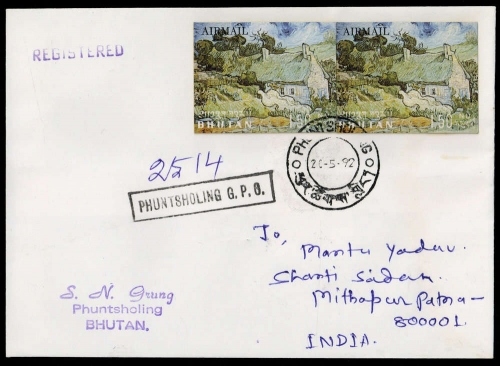 REGISTERED
AIRMAIL
AIRMAIL
BHUTAN
BHUTAN
PHUNTSHOLING
20-5-92
2514
PHUNTSHOLING G.P.O.
To,
Mantu Yadav.
Shanti Sadan.
Mithapur Patna-
800001.
INDIA.
S. N. Grung
Phuntsholing
BHUTAN.